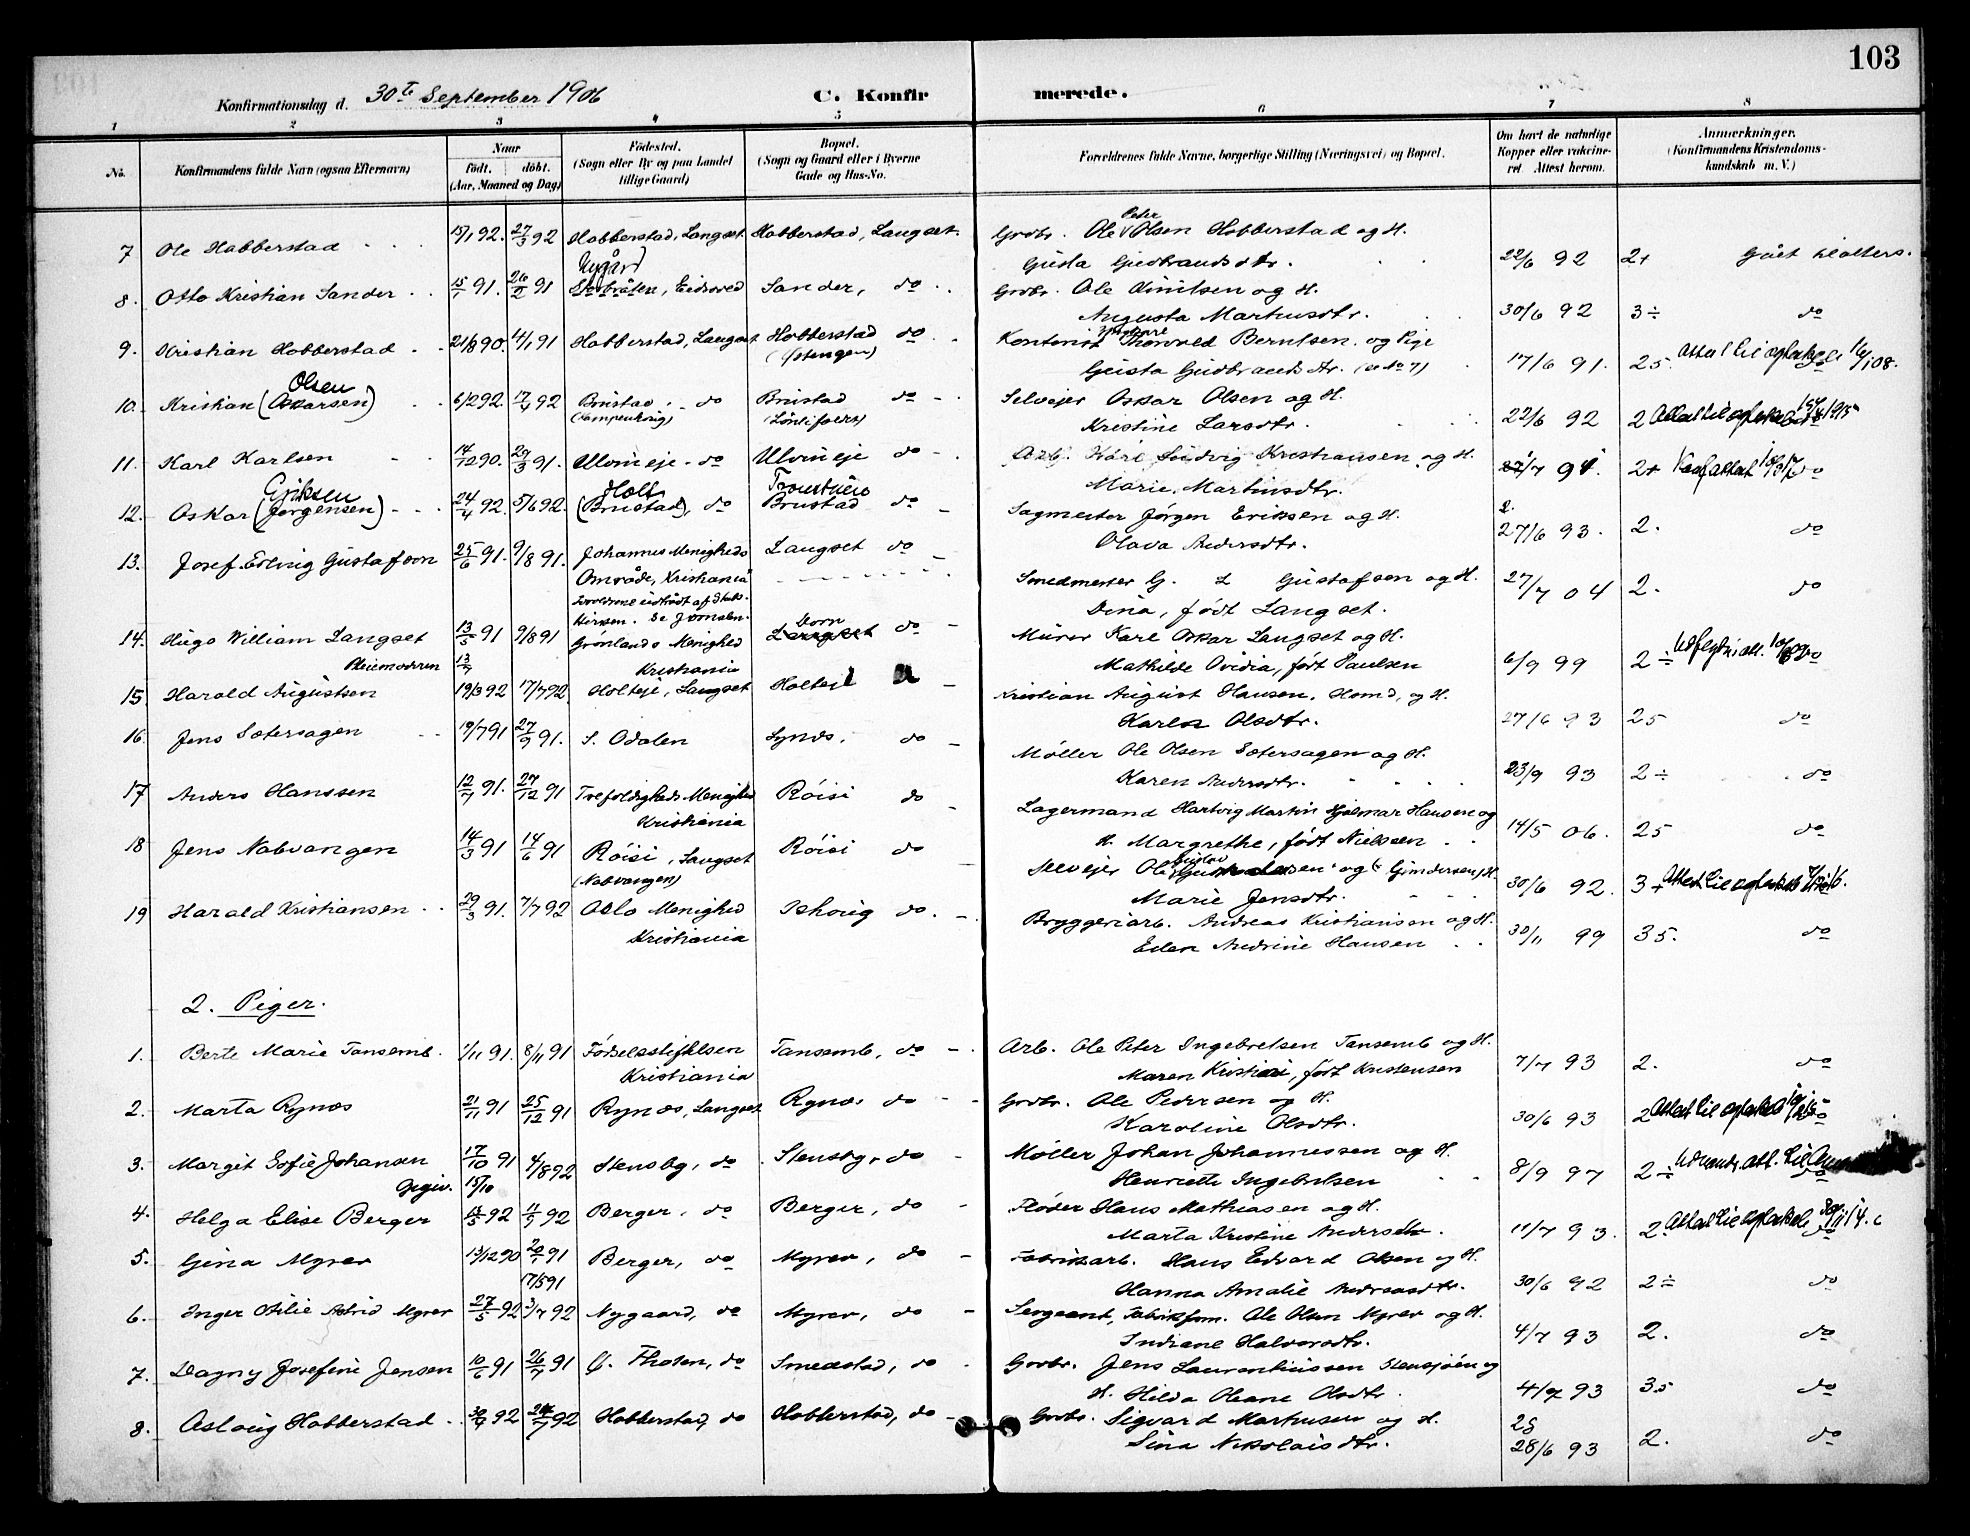 103
Konfirmationsdag d. 30te September 1906 C. Konfirmerede.
1 2 3 4 5 6 7 8
No. Konfirmandens fulde Navn (ogsaa Efternavn) Naar født. døbt. (Aar, Maaned og Dag) Fødested. (Sogn eller By og paa Landet tillige Gaard) Bopæl. (Sogn og Gaard eller i Byerne Gade og Hus-No. Forældrenes fulde Navne, borgerlige Stilling (Næringsvei) og Bopæl. Om havt de naturlige Kopper eller vaccineret. Attest herom. Anmerkninger. (Konfirmandens Kristendomskundskab m. V.)
7 Ole Habberstad 15/1 92. 27/3 92 Habberstad, Langset Habberstad, Langset. Grdbr. Ole Peter Olsen Habberstad og H.
Gusta Gudbrandsdtr. 22/6 92 2+
8. Otto Kristian Sander 15/1 91. 26/2 91 Nygård, Eidsvold Sander, do Grdbr. Ole Knutsen og H.
Augusta Martinsdtr. 30/6 92 3÷ do
9. Kristian Hobberstad 21/8 90. 11/1 91 Hobberstad, Langset Hobberstad do Kontorist Thorvald Berntsen og Pige
Gusta Gudbrandsdtr. (se No 7) 17/6 91. 25.
10. Kristian (Oskarsen) Olsen 6/2 92. 17/4 92 Brustad, do Brustad do Selveier Oskar Olsen og H.
Kristine Larsdtr. 22/6 92 2
11. Karl Karlsen 14/12 90. 29/3 91. Ulvineje, do Ulvineje do Arb. Karl Ludvig Kristiansen og H.
Marie Martinsdtr. 2+ do
12. Oskar (Jørgensen) Eriksen 24/4 92. 5/6 92. Holt (Brustad), do Brustad do Sagmester Jørgen Eriksen og H.
Olava Andersdtr. 27/6 93. 2. do
13. Josef Erling Gustafson 25/6 91. 9/8 91. Johannes Menigheds Langset do
Område, Kristiania Smedmester G. L Gustafsen og H.
Dina, født Langset. 27/7 04 2. do
14. Hugo William Langset 13/5 91 9/8 91 Grønlands Menighed Dorn do Murer Karl Oskar Langset og H.
Pleiemoderen Kristiania Mathilde Ovidia, født Paulsen 6/9 99 2÷
15 Harald Augustsen 19/3 92 17/7 92. Holteje, Langset Holteje Kristian August Hansen, Homd, og H.
Karen Olsdtr. 27/6 93 25 do
16. Jens Sætersagen 19/7 91 27/9 91. S. Odalen Synds, do Møller Ole Olsen Sætersagen og H.
Karen Andersdtr. 23/9 93 2÷ do
17 Anders Hanssen 12/7 91. 27/12 91 Trefoldigheds Menighed Røisi do
Kristiania Lagermand Hartvig Martin Hjalmar Hansen og
H. Margrethe, født Nielssen 14/5 06. 25 do
18 Jens Nabvangen 14/3 91 14/6 91 Røisi, Langset Røisi do
(Nabvangen) Selveier Ole og (Gundersen) H.
Marie Jensdtr. 30/6 92. 3+
19 Harald Kristiansen 29/3 91. 7/7 92 Oslo Menighed Ishoug do.
Kristiania Bryggeriarb. Andreas Kristiansen og H.
Ellen Andrine Hansen 30/11 99 35. do
2. Piger.
1. Berte Marie Tansemb. 1/11 91. 8/11 91 Fødselsstiftelsen Tansemb, do Arb. Ole Peter Ingebretsen Tansemb og H.
Kristiania Maren Kristine, født Kristensen 7/7 93 2. do
2. Marta Rynæs 21/11 91 25/12 91 Rynæs, Langset Rynæs do Grdbr. Ole Pedersen og H.
Karoline Olsdtr. 30/6 93 2
3. Margit Sofie Johansen 17/10 91 4/8 92 Stensby, do Stensby, do Møller Johan Johannessen og H.
15/10 Henriette Ingebretsen 8/9 97 2÷
4. Helga Elise Berger 92 11/9 92 Berger, do Berger, do Fløder Hans Mathiasen og H.
Marta Kristine Andersdtr. 11/7 93. 2.
5. Gina Myrer 13/12 90 91 Berger, do Myrer, do Fabrikarb. Hans Edvard Olsen og H.
17/5 91 Hanna Amalie Andreasdtr. 30/6 92 2÷ do
6. Inger Otilie Astrid Myrer 27/5 92 3/7 92 Nygaard, do Myrer, do Sergeant, Fabrikform. Ole Olsen Myrer og H.
Indiane Halvorsdtr. 4/7 93 2. do
7. Dagny Josefine Jensen 10/6 91 26/7 91 Tholen, do Smedstad, do Grdbr. Jens Laurentiussen Stensjøen og
H. Hilda Oleane Olsdtr. 93 35 do
8. Aslaug Hobberstad 92 92 Hobberstad, do Hobberstad, do Grdbr. Sigvard Martinsen og H.
Sina Nikolaisdtr. 28/6 93 2. do